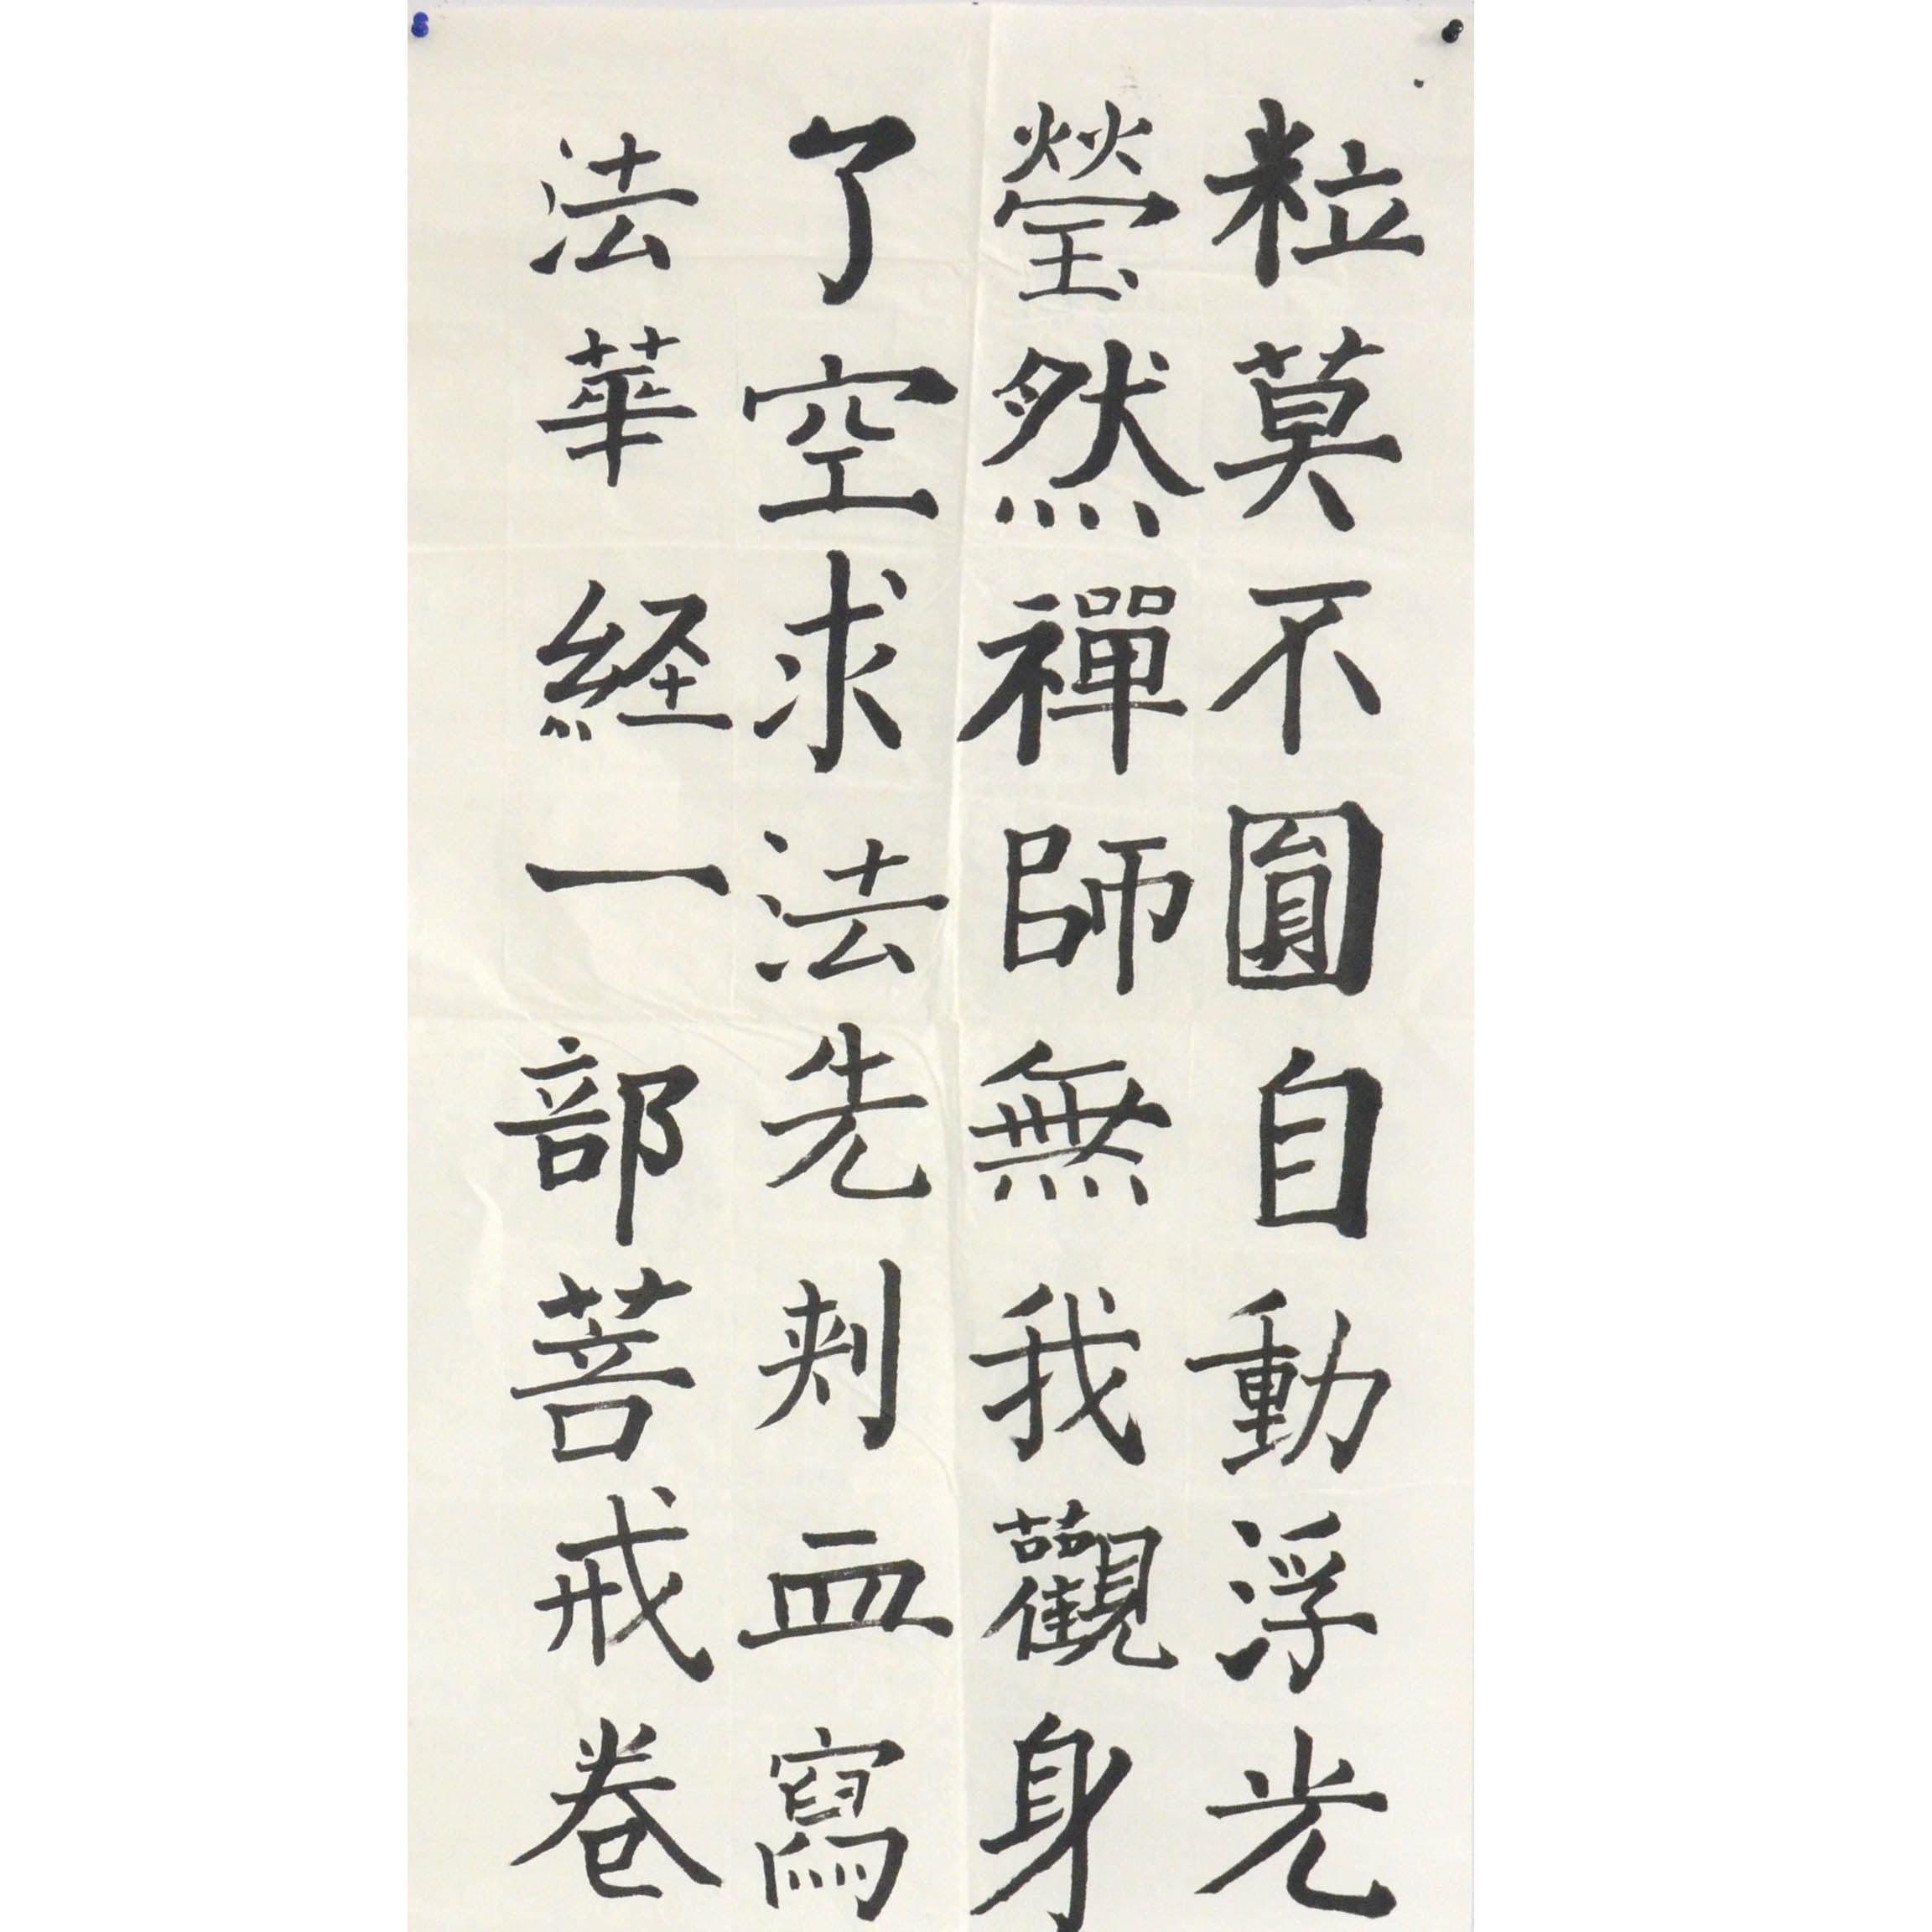 粒莫不圓自動浮光
瑩然禪師無我觀身
了空求法先刾血寫
法華経一部菩戒卷